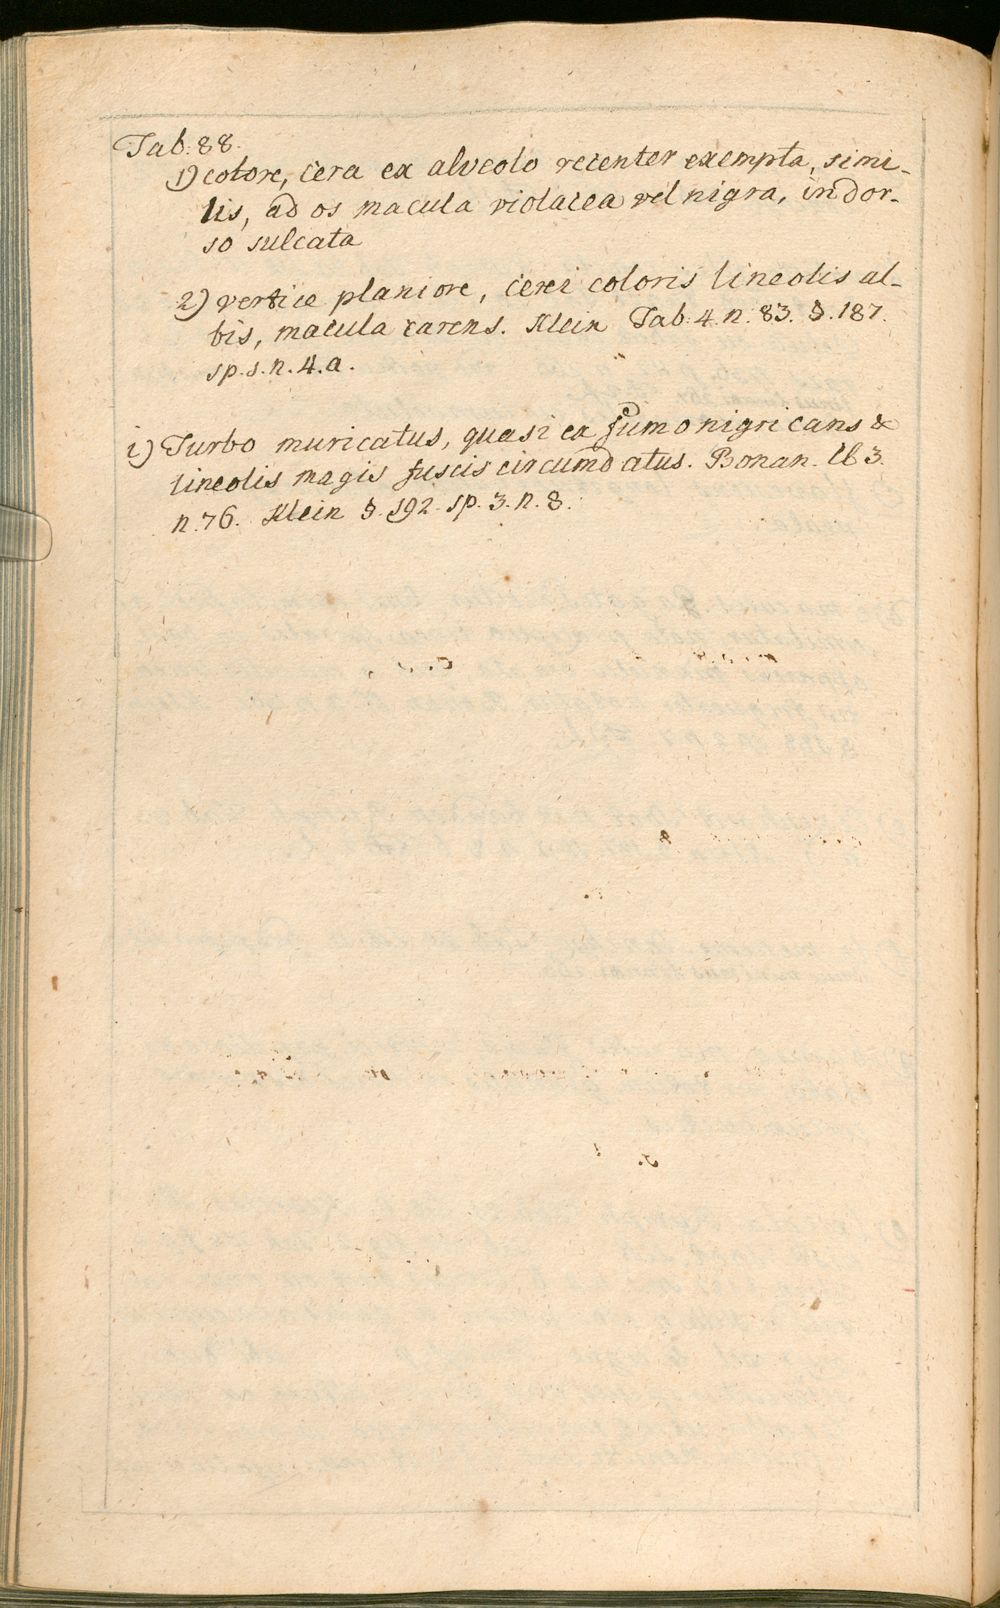 Tab. 88.
1) colore, cera ex alveolo recenter exempta, simi-
lis, ad os macula violacea vel nigra, in dor-
so sulcata
2) vertice planiore, cerei coloris lineolis al-
bis, macula carens. Klein Tab. 4. n. 83. §. 187.
sp. 1. n. 4. a.
i) Turbo muricatus, quasi ex fumo nigricans &
lineolis magis fuscis circumdatus. Bonan. Cl 3.
n. 76. Klein §. 192. sp. 3. n. 8.